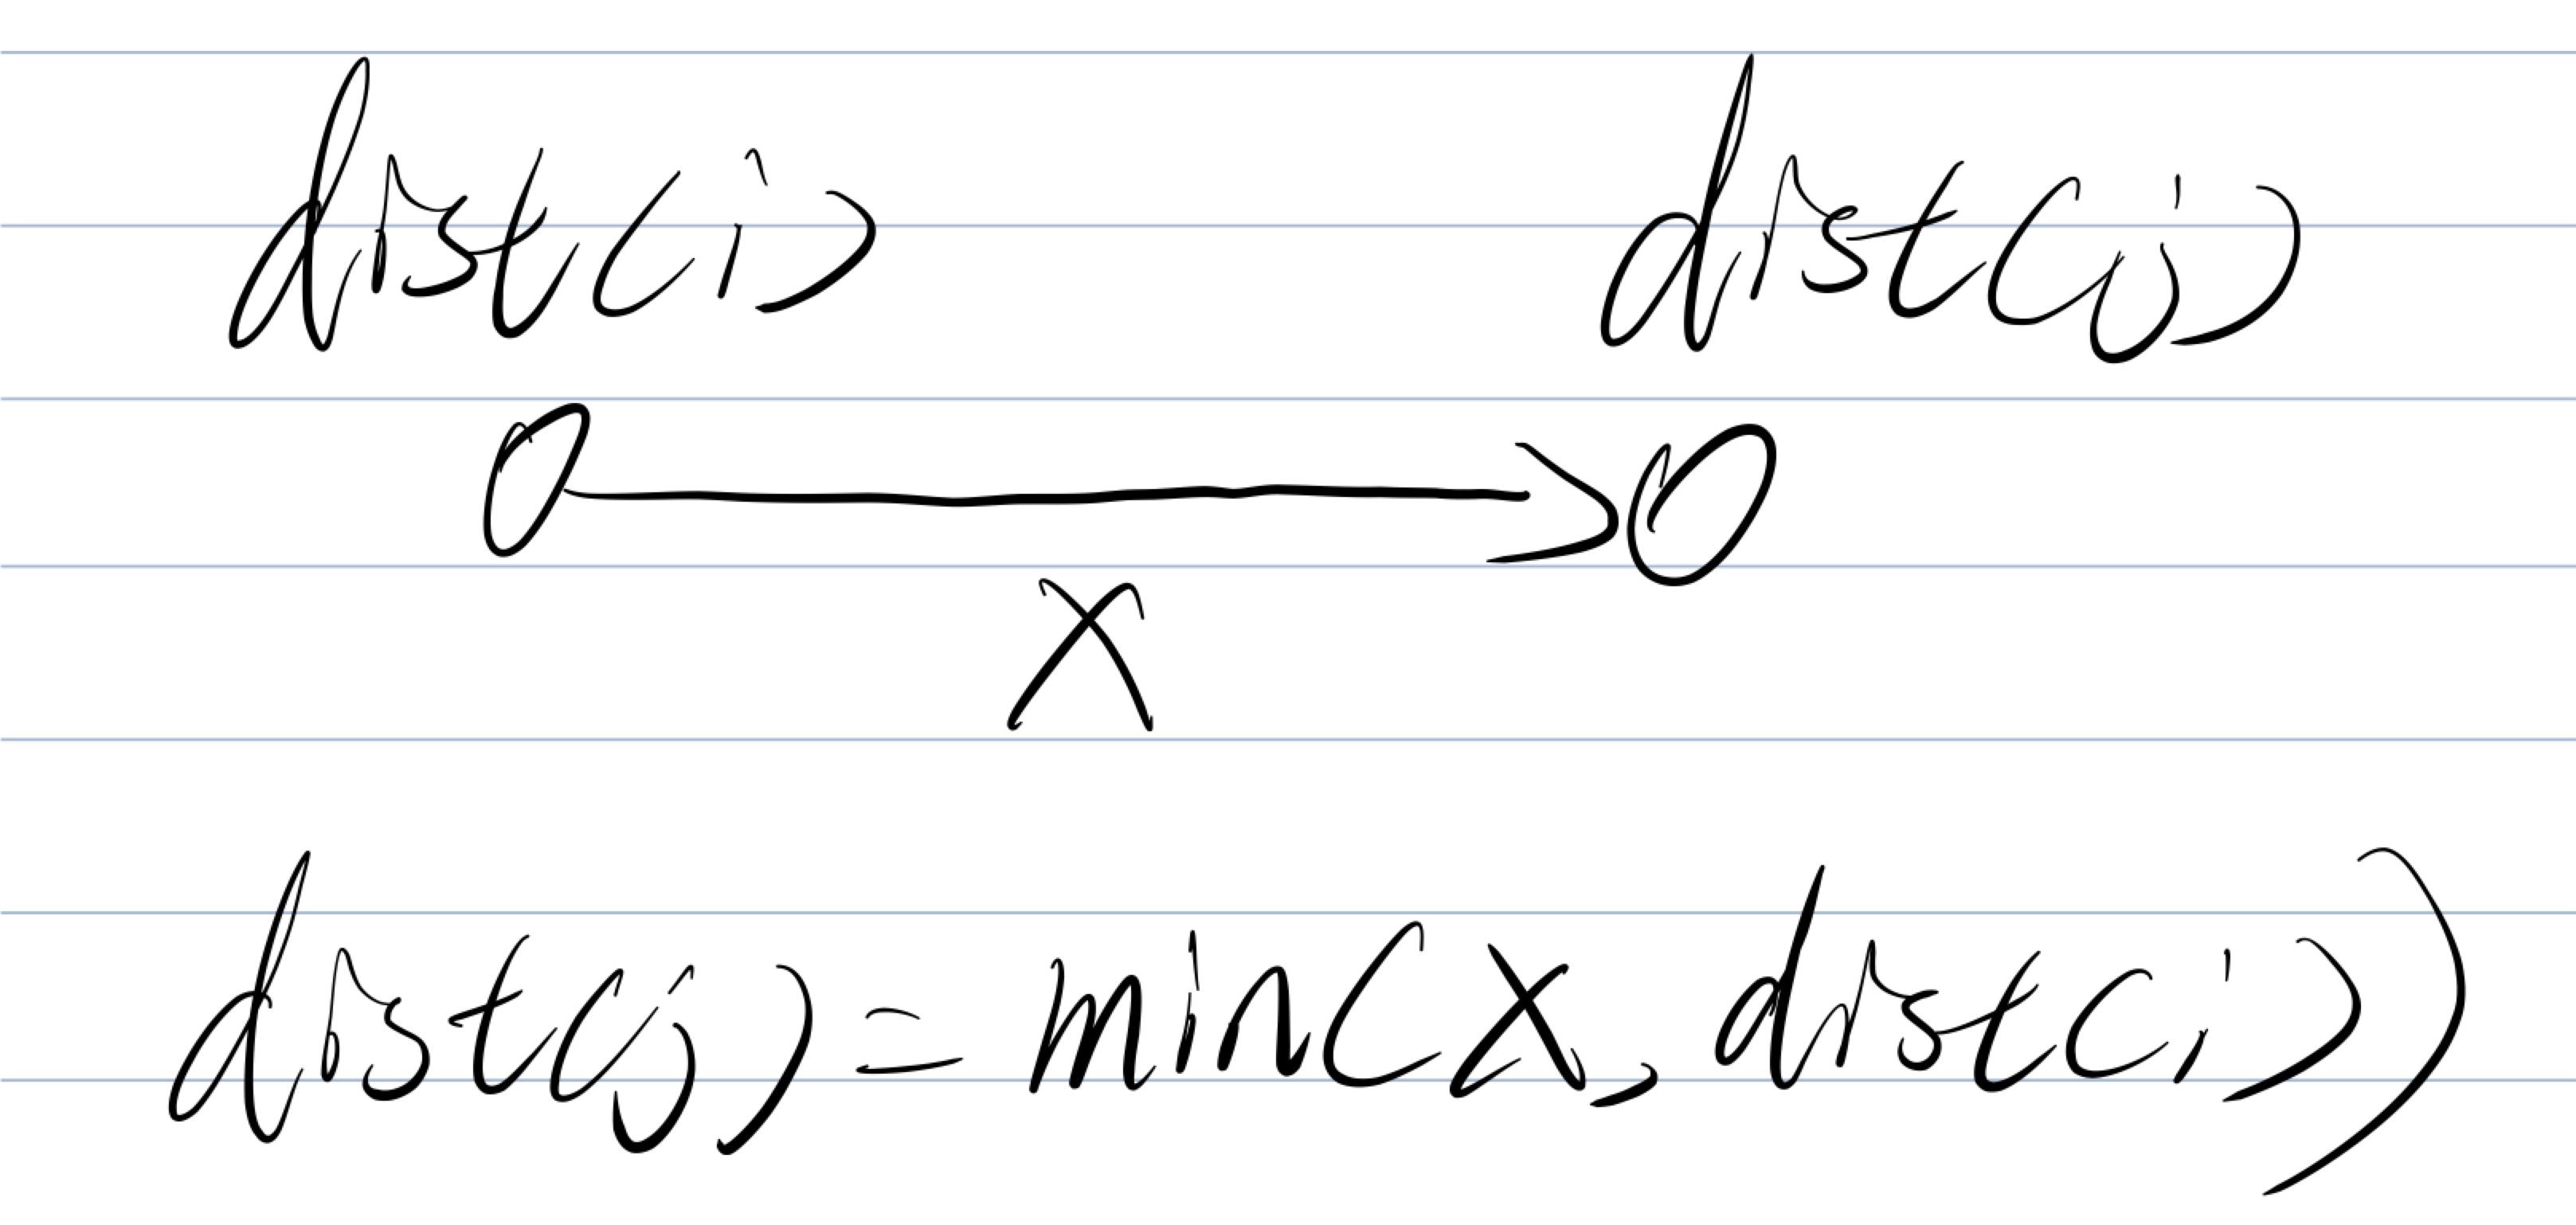 dist(i) dist(j)
X
dist(j) = min(X, dist(i))